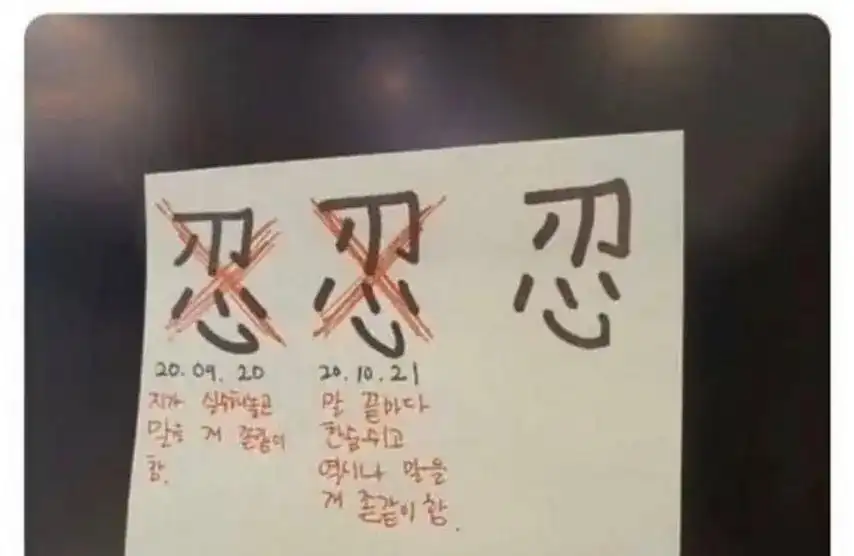 忍 忍 忍
20.09.20
지가 실수해놓고
말을 져 존같이
함.
20.10.21
말 끝마다
한숨쉬고
역시나 말을
져 존같이 함.